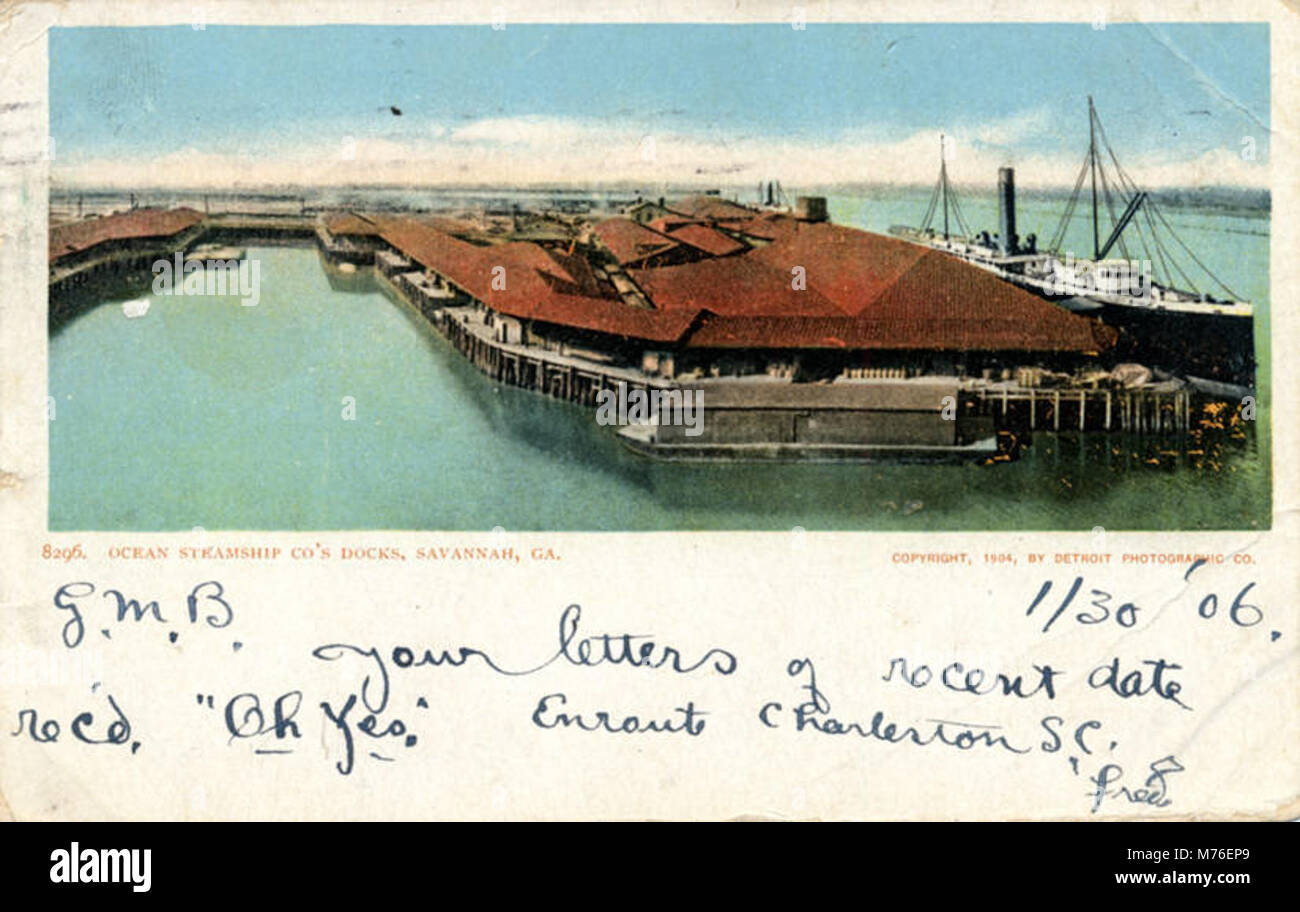 8296. OCEAN STEAMSHIP CO'S DOCKS, SAVANNAH, GA.
COPYRIGHT, 1904, BY DETROIT PHOTOGRAPHIC CO.
G.M.B. 1/30 '06.
your letters of recent date
rec'd. "Oh Yes." Enroute Charleston S.C.
"Fred
alamy
Image ID: M76EP9
www.alamy.com